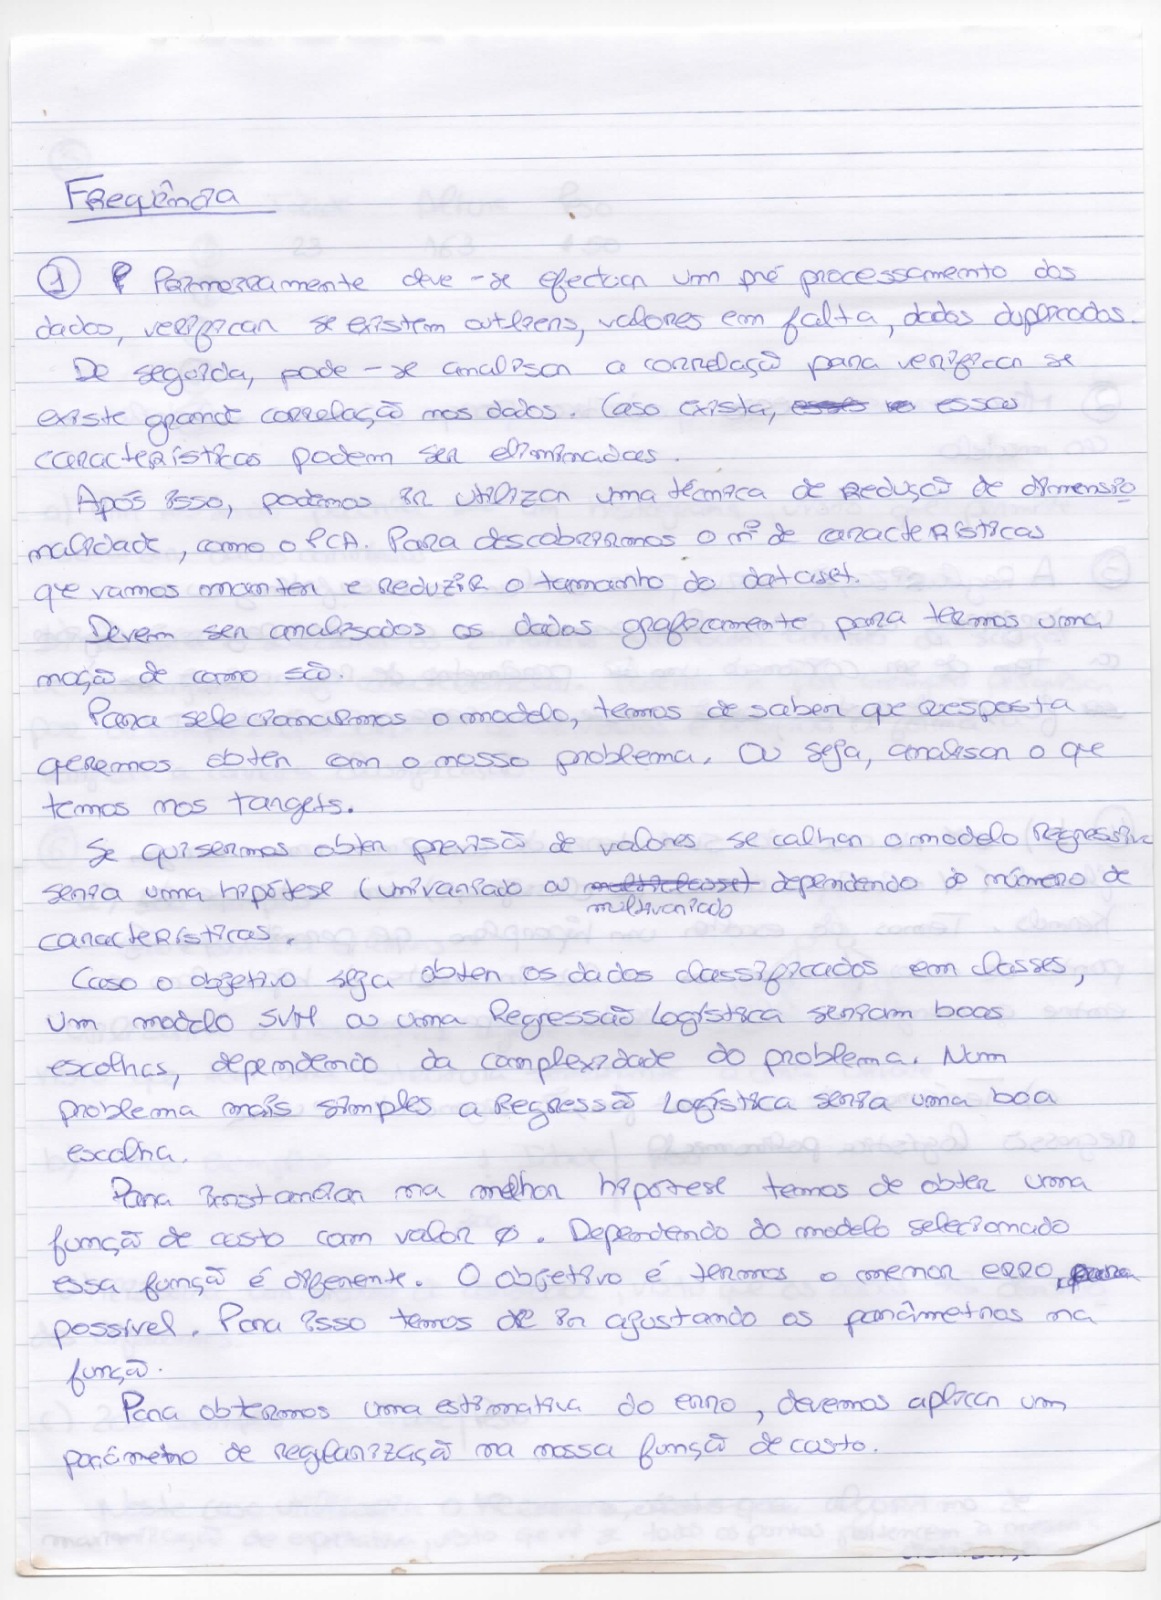 Freqência
① Primeiramente deve-se efectuar um pré processamento dos
dados, verificar se existem outliers, valores em falta, dados duplicados.
De seguida, pode-se analisar a correlação para verificar se
existe grande correlação nos dados. Caso exista, essas
características podem ser eliminadas.
Após isso, podemos ir utilizar uma técnica de redução de dimensio
nalidade, como o PCA. Para descobrirmos o nº de características
que vamos manter e reduzir o tamanho do dataset.
Devem ser analizados os dados graficamente para termos uma
noção de como são.
Para selecionarmos o modelo, temos de saber que resposta
queremos obter com o nosso problema. Ou seja, analisar o que
temos nos targets.
Se quisermos obter previsão de valores se calhar o modelo Regressivo
seria uma hipótese (univariado ou dependendo do número de
multivariado
características.
Caso o objetivo seja obter os dados classificados em classes,
um modelo SVM ou uma Regressão Logística seriam boas
escolhas, dependendo da complexidade do problema. Num
problema mais simples a Regressão Logística seria uma boa
escolha.
Para instanciar na melhor hipótese temos de obter uma
função de custo com valor 0. Dependendo do modelo selecionado
essa função é diferente. O objetivo é termos o menor erro
possível. Para isso temos de ir ajustando os parâmetros na
função.
Para obtermos uma estimativa do erro, devemos aplicar um
parâmetro de regularização na nossa função de custo.